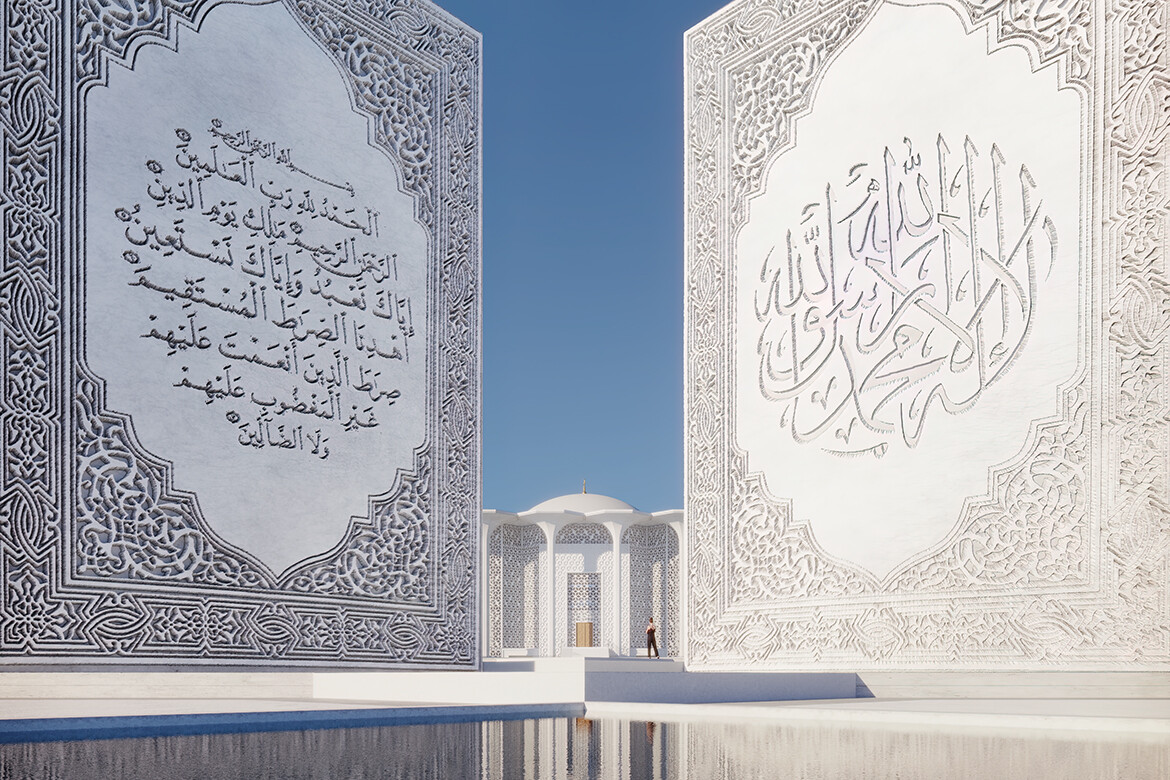 لا إله إلا الله محمد رسول الله
بِسْمِ اللَّهِ الرَّحْمَٰنِ الرَّحِيمِ
الْحَمْدُ لِلَّهِ رَبِّ الْعَٰلَمِينَ
الرَّحْمَٰنِ الرَّحِيمِ مَٰلِكِ يَوْمِ الدِّينِ
إِيَّاكَ نَعْبُدُ وَإِيَّاكَ نَسْتَعِينُ
اهْدِنَا الصِّرَٰطَ الْمُسْتَقِيمَ
صِرَٰطَ الَّذِينَ أَنْعَمْتَ عَلَيْهِمْ
غَيْرِ الْمَغْضُوبِ عَلَيْهِمْ
وَلَا الضَّالِّينَ